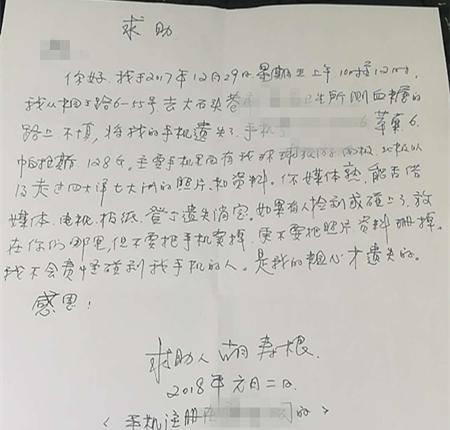 求助
你好，我于2017年12月29日星期五上午10时至12时，
我从中山路6-55号去大石头巷 卫生所测血糖的
路上，不慎，将我的手机遗失了，手机 6 苹果6.
内存 128G.主要手机里面有我 南极 北极以
及走过四大洋七大洲的照片和资料。你媒体熟，能否借
媒体、电视、报纸、登了遗失消息，如果有人捡到或碰上了，放
在你们那里，但不要把手机卖掉，更不要把照片资料删掉。
我不会责怪碰到我手机的人。是我的粗心才遗失的。
感恩！
求助人 胡寿根.
2018年元月二日.
（手机注册 的）